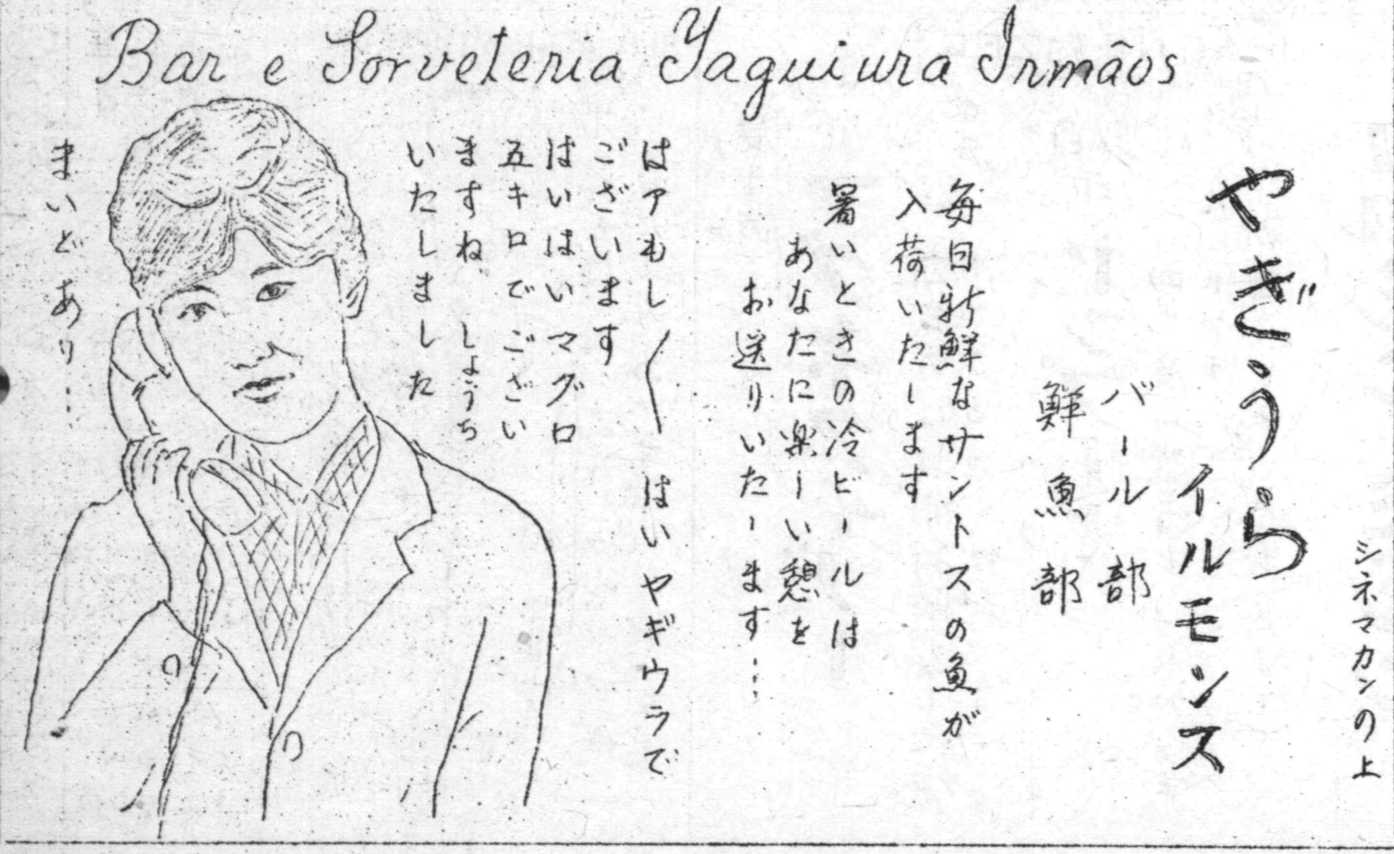 Bar e Sorveteria Yaguiura Irmãos
シネマカンの上
やぎうら
イルモンス
バール部
鮮魚部
毎日新鮮なサントスの魚が
入荷いたします
暑いときの冷ビールは
あなたに楽しい憩を
お送りいたします…
はアもし〳〵はいヤギウラで
ございます
はいはいマグロ
五キロでござい
ますね、しょうち
いたしました
まいどあり…